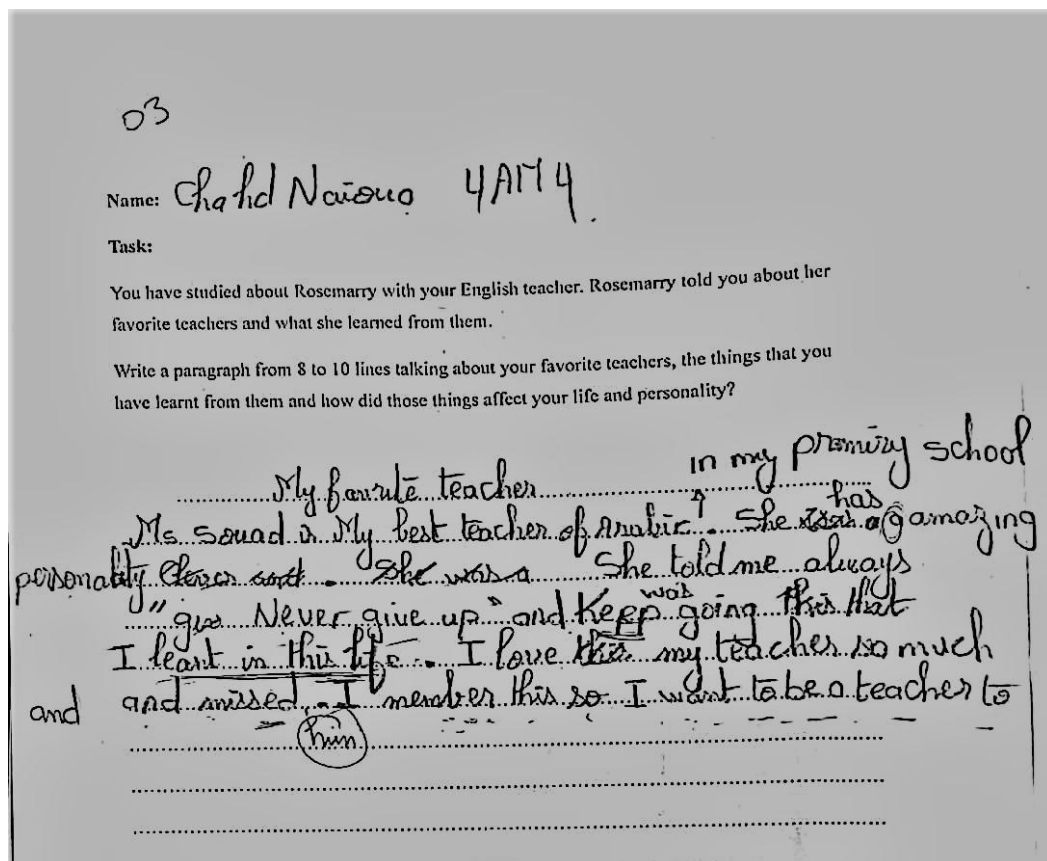 03
Name: Chahd Naioua 4AM4.
Task:
You have studied about Rosemarry with your English teacher. Rosemarry told you about her
favorite teachers and what she learned from them.
Write a paragraph from 8 to 10 lines talking about your favorite teachers, the things that you
have learnt from them and how did those things affect your life and personality?
in my primiry school
My favrite teacher
Ms souad is My best teacher of Arabic. She has a amazing
personality. She was a She told me always
"Never give up" and Keep going This was that
I leart in this life. I love my teacher so much
and and missed. I member this so I want to be a teacher to
him